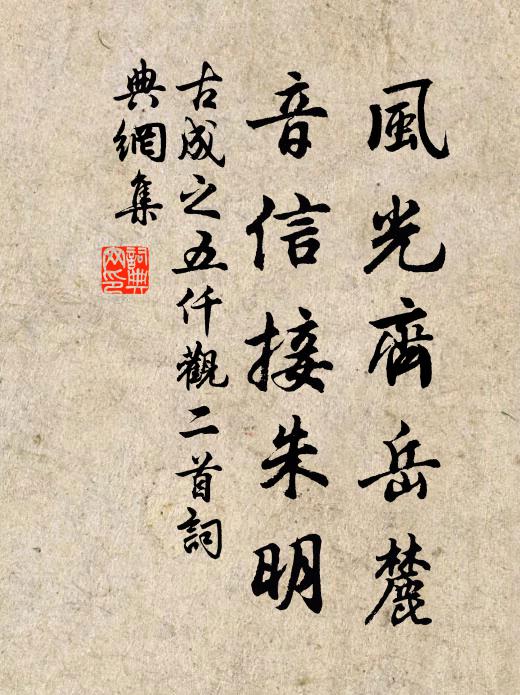 風光齊岳麓
音信接朱明
古成之五仟觀二首詞
典網集
詞典
网印